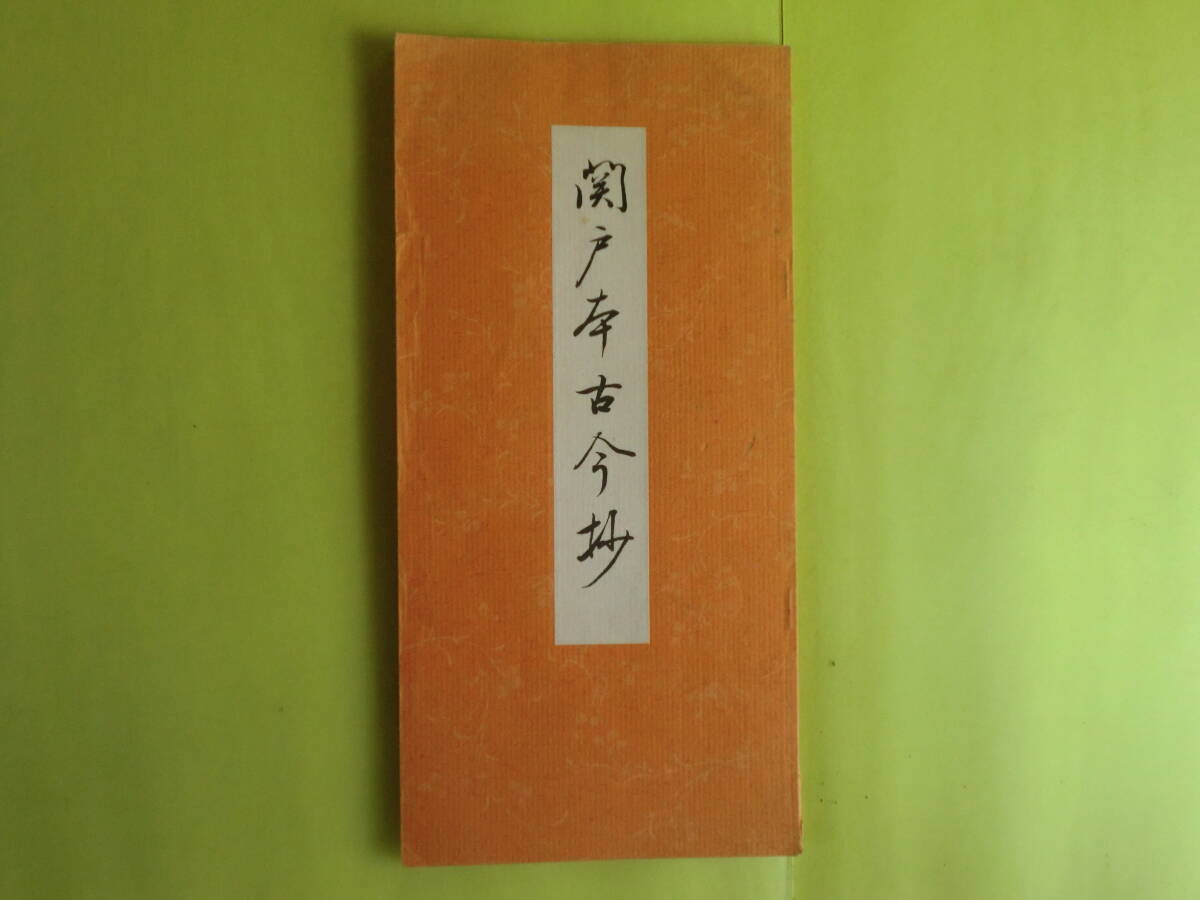 関戸本古今抄